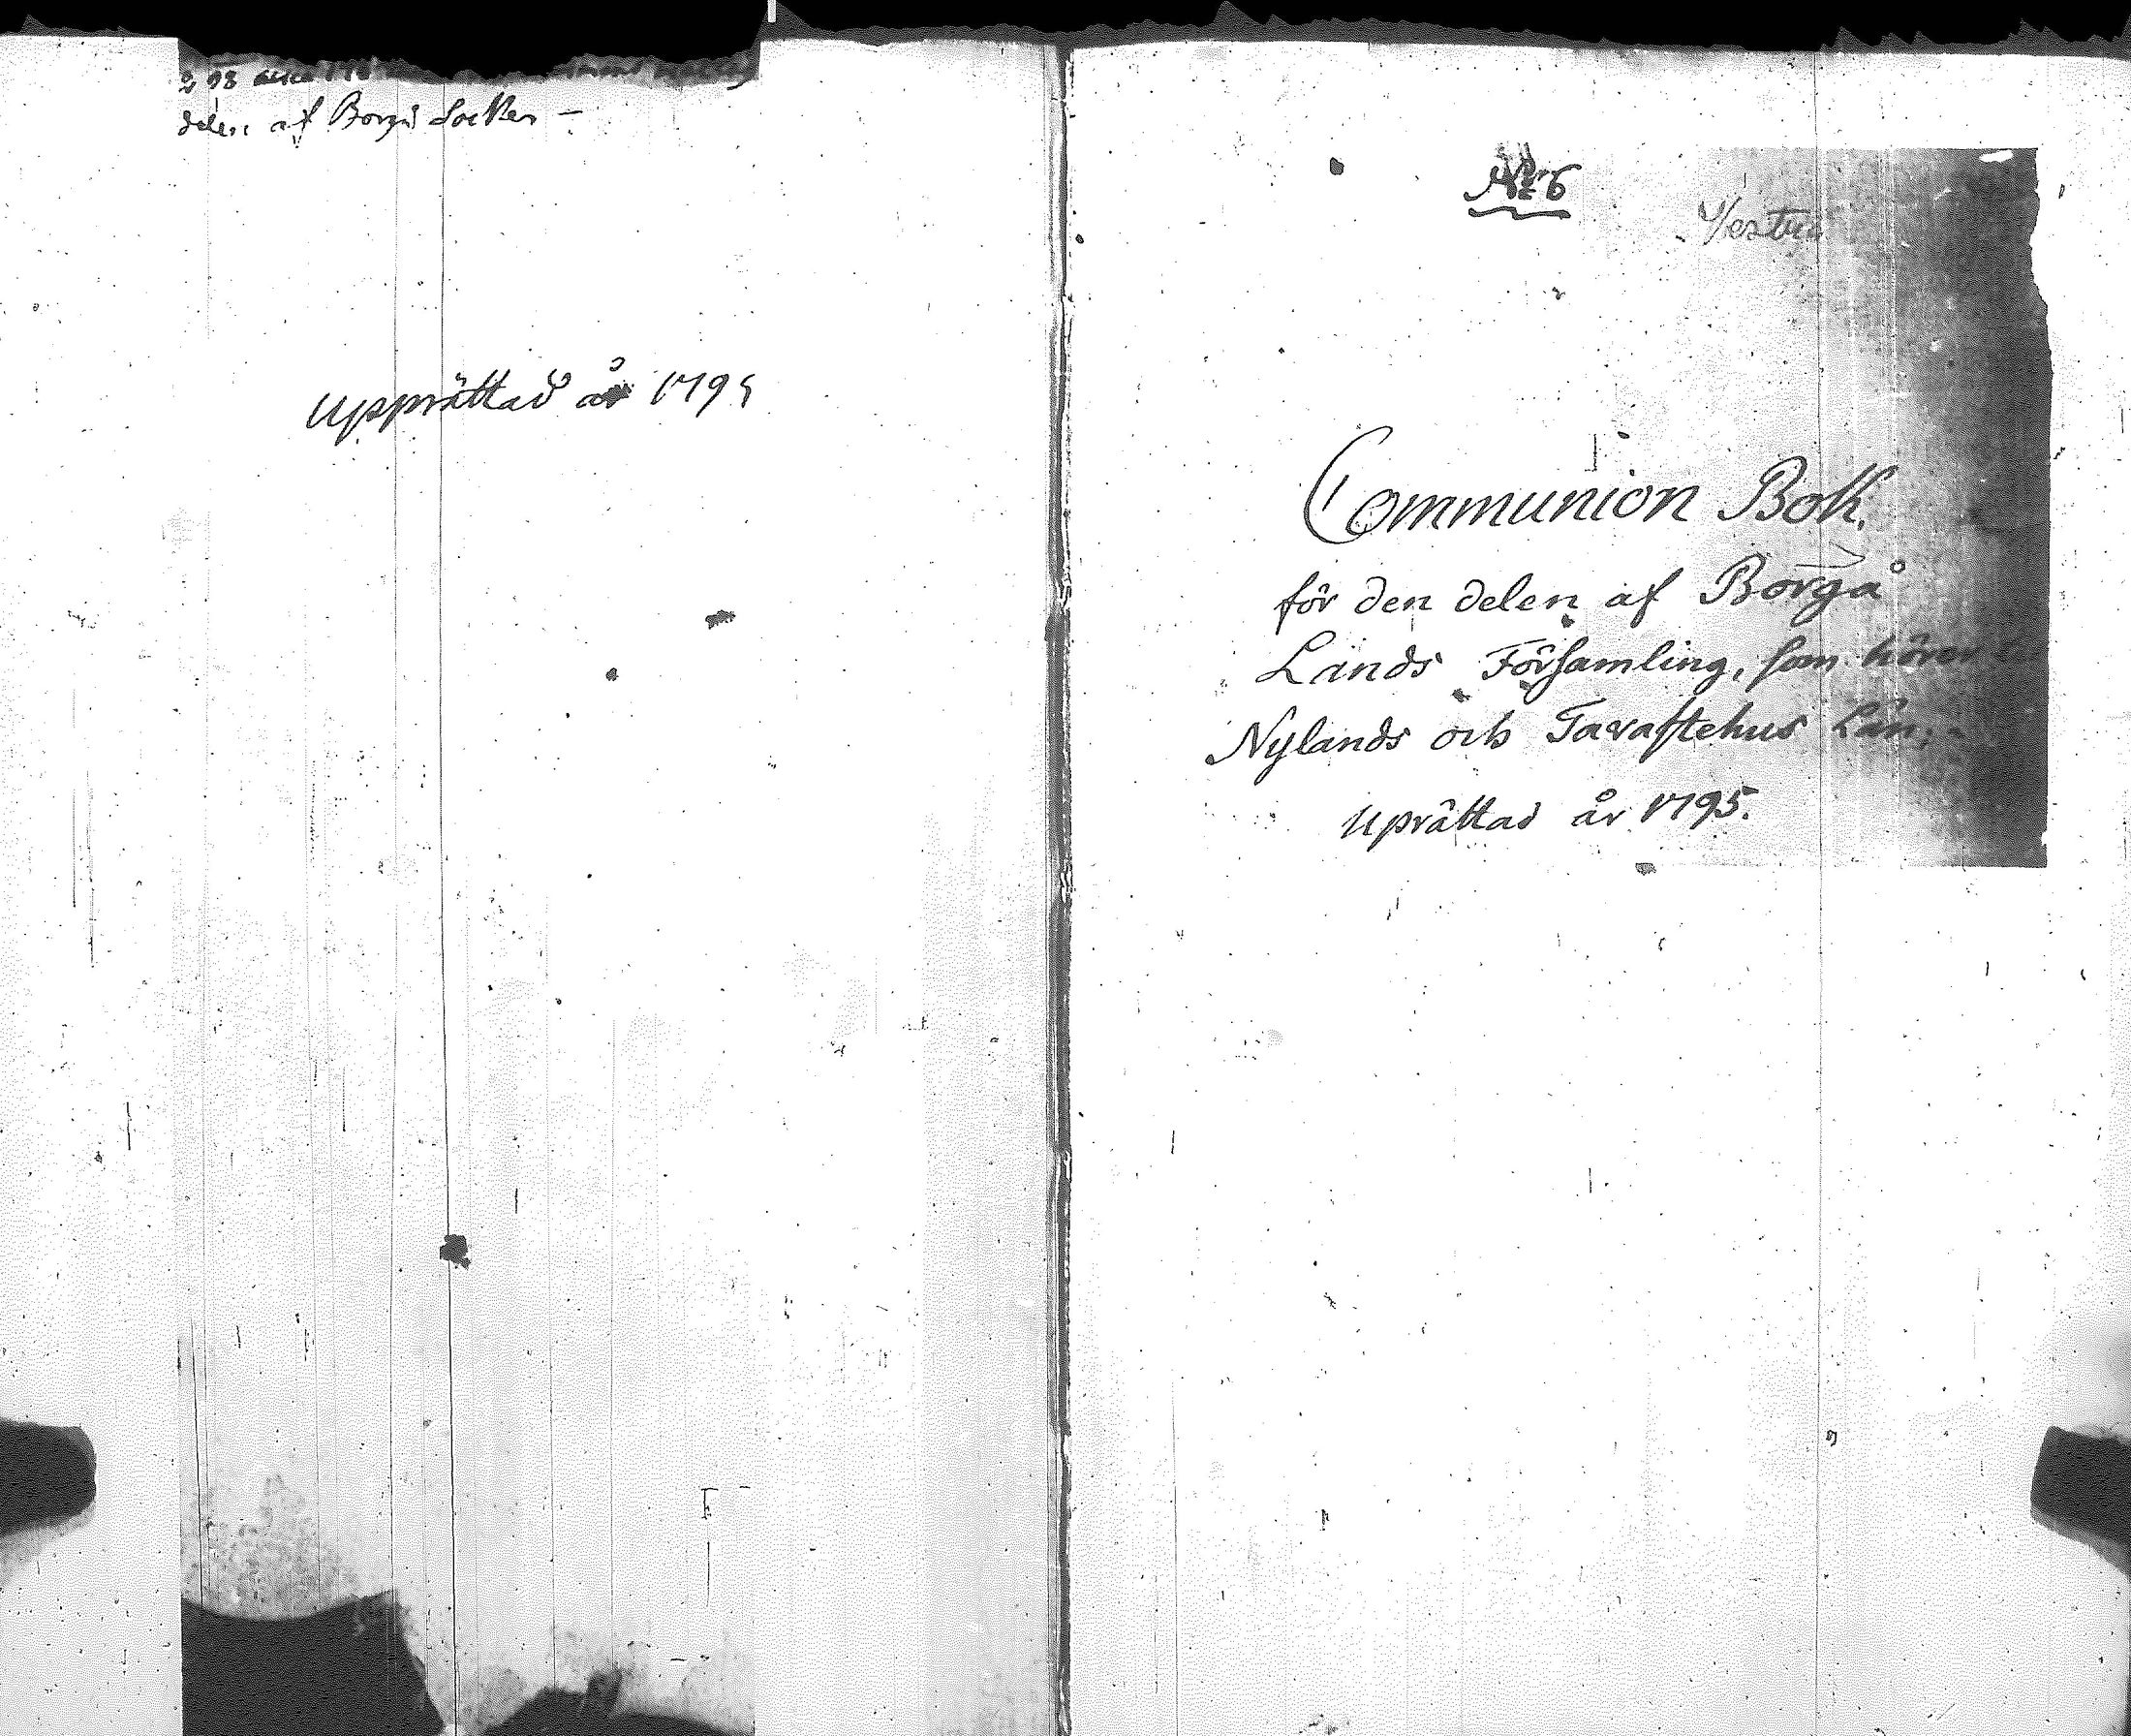 delen af Borgå Socken –
Upprättad år 1795
N:o 6
Vestra
Communion Bok.
för den delen af Borgå
Lands Församling, som hörer til
Nylands och Tavastehus Län,
Uprättad år 1795.